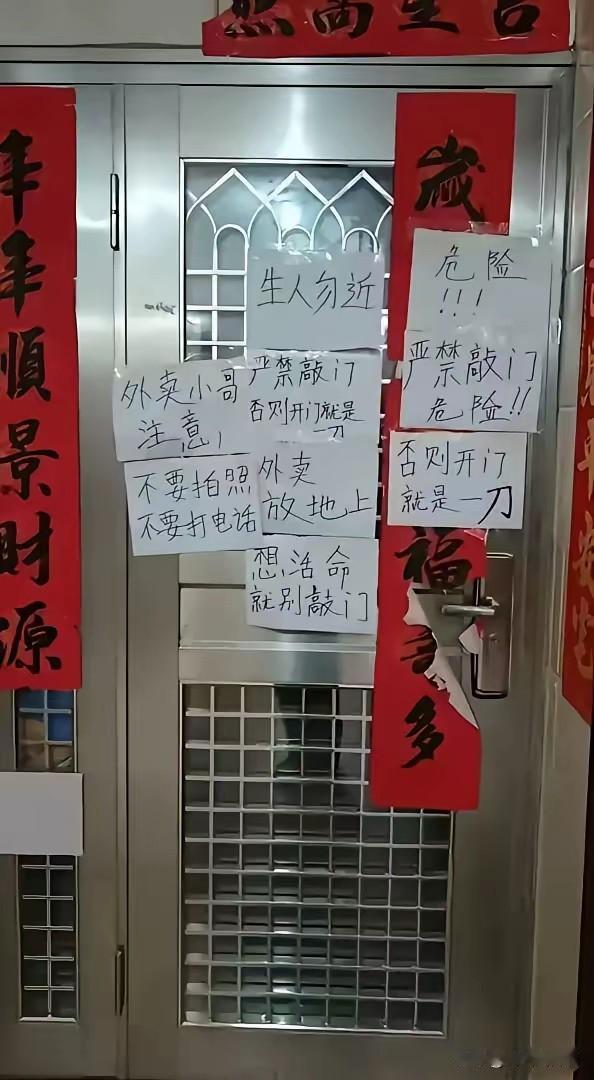 吉星高照
年年順景財源
歲
福
多
生人勿近
危险
!!!
外卖小哥
注意,
严禁敲门
否则开门就是
一刀
严禁敲门
危险!!
不要拍照
不要打电话
外卖
放地上
否则开门
就是一刀
想活命
就别敲门
平安